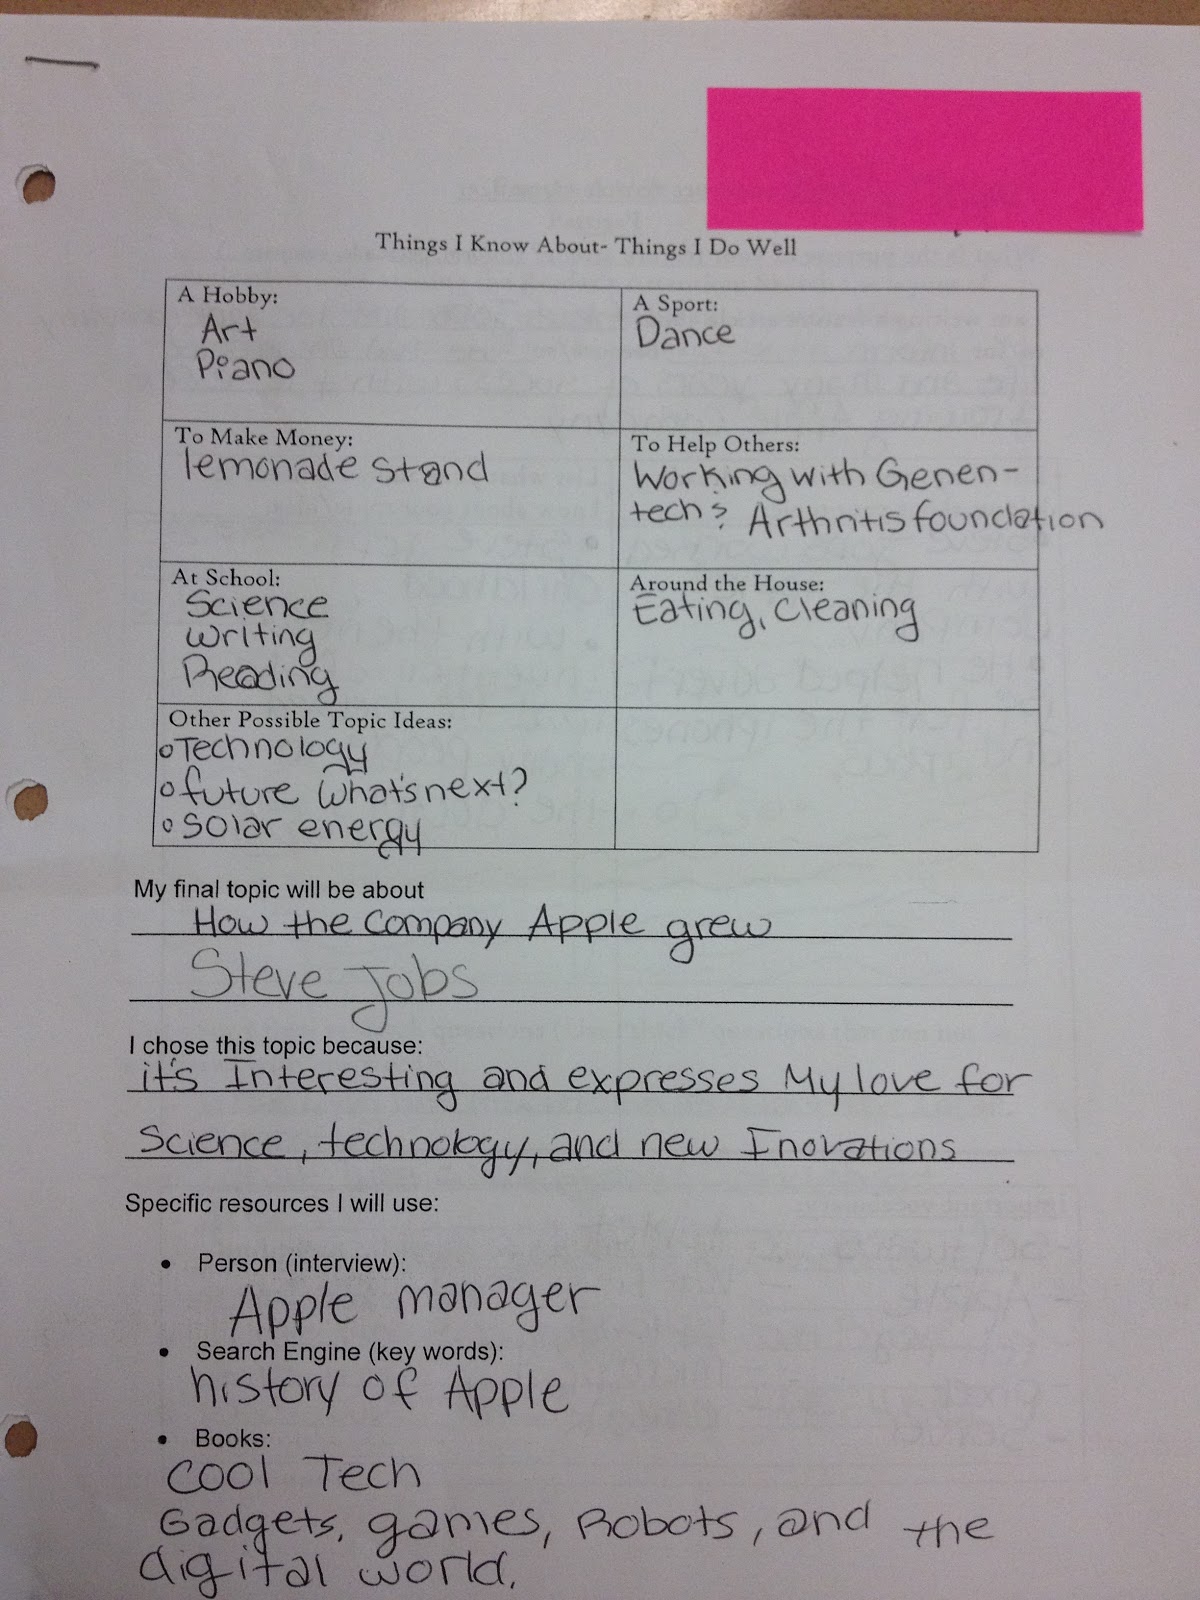 Things I Know About- Things I Do Well
A Hobby:
Art
Piano
A Sport:
Dance
To Make Money:
lemonade stand
To Help Others:
Working with Genen-
tech? Arthritis foundation
At School:
Science
writing
Reading
Around the House:
Eating, cleaning
Other Possible Topic Ideas:
Technology
future what's next?
solar energy
My final topic will be about
How the company Apple grew
Steve Jobs
I chose this topic because:
it's Interesting and expresses My love for
Science, technology, and new Inovations
Specific resources I will use:
• Person (interview):
Apple manager
• Search Engine (key words):
history of Apple
• Books:
Cool Tech
Gadgets, games, Robots, and the
digital world.